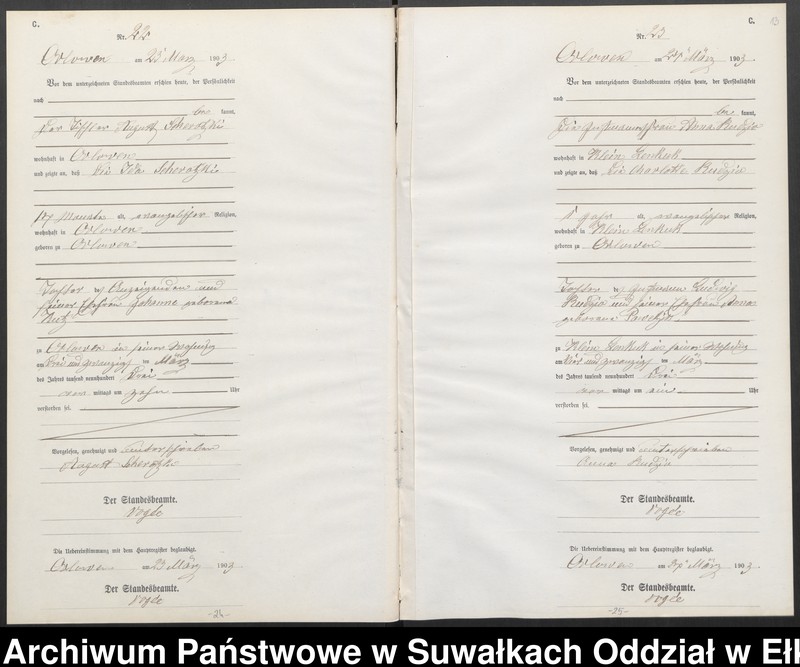 C.
Nr. 22
Orlowen am 23 ten März 1903.
Vor dem unterzeichneten Standesbeamten erschien heute, der Persönlichkeit
nach
be kannt,
der Tischler August
wohnhaft in Orlowen
und zeigte an, daß die Ida
17 Monate a, evangelischer Religion,
wohnhaft in Orlowen
geboren zu Orlowen
Tochter des Anzeigenden und
seiner Ehefrau Johanne geborene
zu Orlowen in seiner Wohnung
am drei und zwanzigsten März
des Jahres tausend neunhundert drei
vor mittags um zehn Uhr
verstorben sei.
Vorgelesen, genehmigt und unterschrieben
August
Der Standesbeamte.
Vogle
Die Uebereinstimmung mit dem Hauptregister beglaubigt.
Orlowen am 23 ten März 1903.
Der Standesbeamte.
Vogle
-24-
C.
13
Nr. 23
Orlowen am 24 ten März 1903.
Vor dem unterzeichneten Standesbeamten erschien heute, der Persönlichkeit
nach
be kannt,
die Instmannsfrau Anna Rudzio
wohnhaft in Klein Lenkuk
und zeigte an, daß die Charlotte Rudzio
1 Jahr a, evangelischer Religion,
wohnhaft in Klein Lenkuk
geboren zu Orlowen
Tochter des Instmann Ludwig
Rudzio und seiner Ehefrau Anna
geborene
zu Klein Lenkuk in seiner Wohnung
am vier und zwanzigsten März
des Jahres tausend neunhundert drei
vor mittags um ein Uhr
verstorben sei.
Vorgelesen, genehmigt und unterschrieben
Anna Rudzio
Der Standesbeamte.
Vogle
Die Uebereinstimmung mit dem Hauptregister beglaubigt.
Orlowen am 24 ten März 1903.
Der Standesbeamte.
Vogle
-25-
Archiwum Państwowe w Suwałkach Oddział w Eł